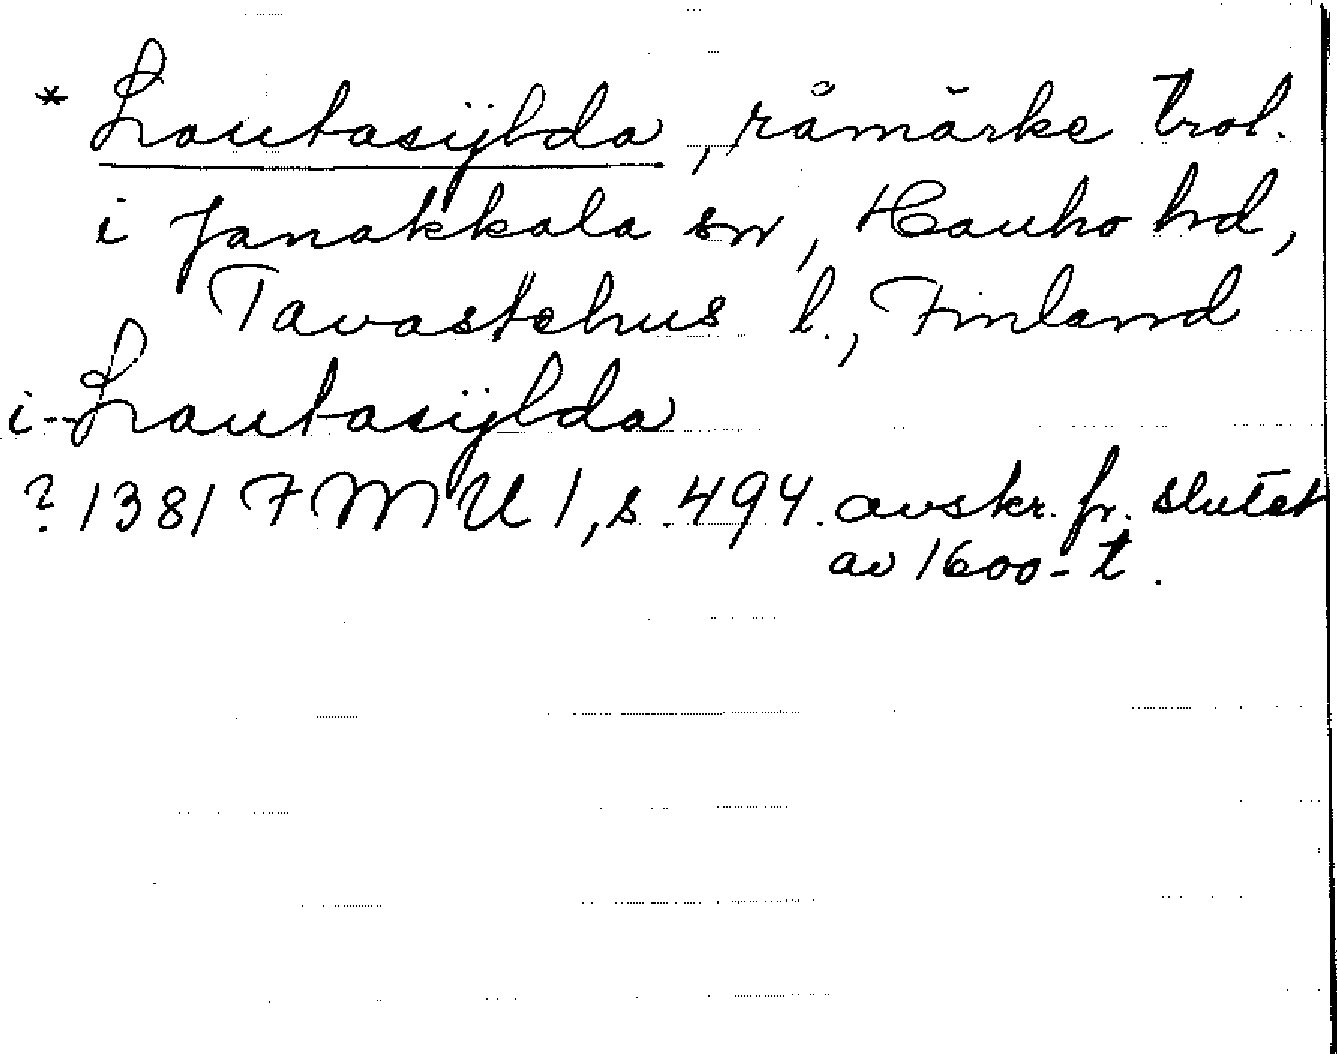 * Lautasÿlda, råmärke trol.
i Janakkala sn, Hauho hd,
Tavastehus l., Finland
i--Lautasÿlda
? 1381 FMU 1, s. 494. avskr. fr. slutet
av 1600-t.